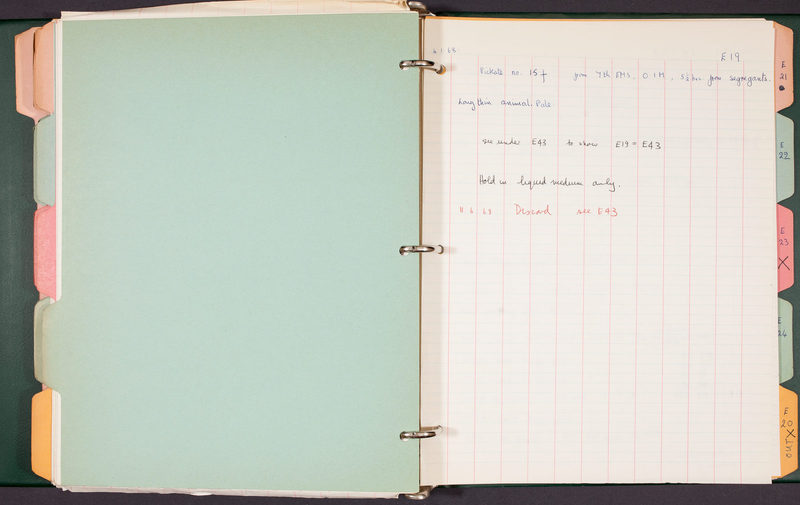 E19
Pickate no. 15 from 7th EMS, 0.1M, 5½ hr from segregants.
Long thin animal. Pale
see under E43 to show E19 = E43
Hold in liquid medium only.
11 6 68 Discard see E43
E
21
E
22
E
23
X
E
24
E
20
OUT X